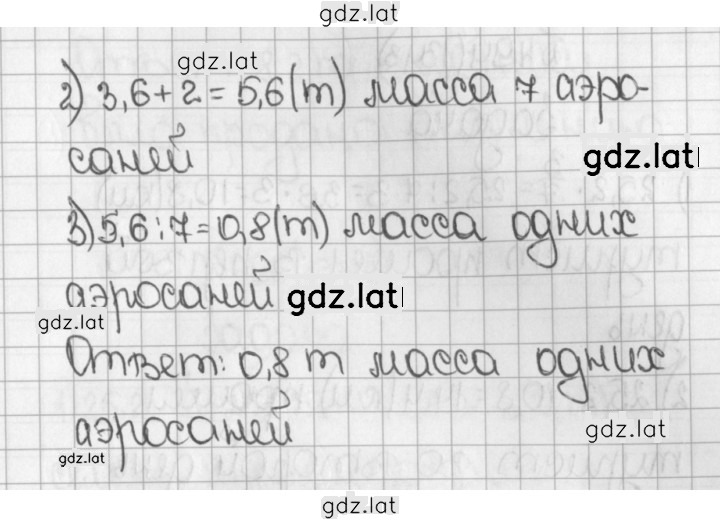 gdz.lat
gdz.lat
2) 3,6+2=5,6(т) масса 7 аэро-
саней
gdz.lat
3) 5,6:7=0,8(т) масса одних
аэросаней
gdz.lat
gdz.lat
Ответ: 0,8 т масса одних
аэросаней
gdz.lat
gdz.lat
gdz.lat